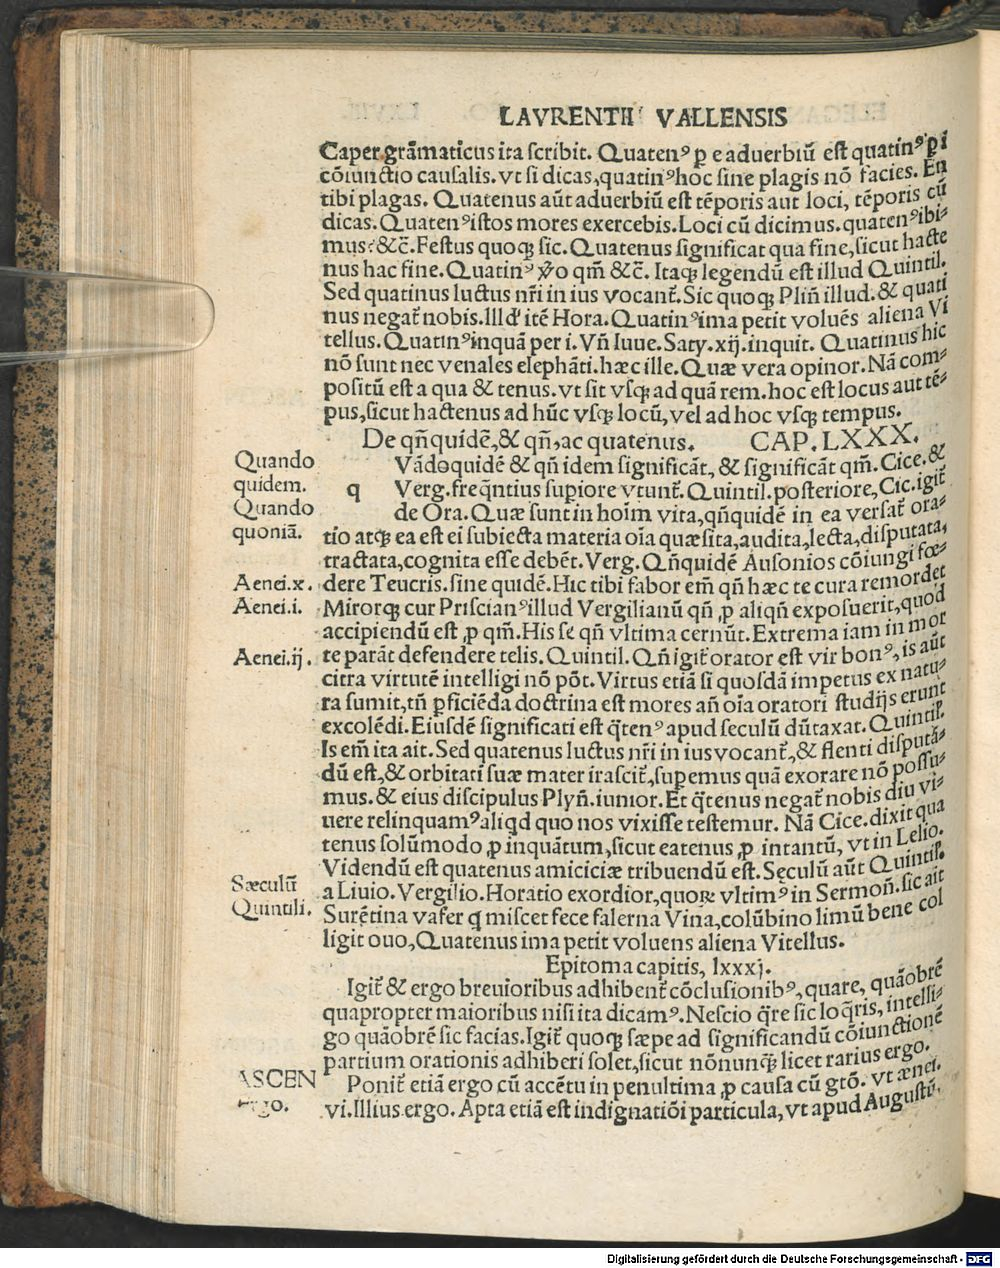 LAVRENTII VALLENSIS
Caper grãmaticus ita scribit. Quatenꝰ p e aduerbiũ est quatinꝰ p i
cõiunctio causalis. vt si dicas, quatinꝰ hoc sine plagis nõ facies. En
tibi plagas. Quatenus aũt aduerbiũ est tẽporis aut loci, tẽporis cũ
dicas. Quatenꝰ istos mores exercebis. Loci cũ dicimus. quatenꝰ ibi-
mus: &c̃. Festus quoqꝫ sic. Quatenus significat qua fine, sicut hacte
nus hac fine. Quatinꝰ ꝟo qm̃ &c̃. Itaqꝫ legendũ est illud Quintil.
Sed quatinus luctus nr̃i in ius vocant̃. Sic quoqꝫ Plin̄ illud. & quati
nus negat̃ nobis. Illd' itẽ Hora. Quatinꝰ ima petit voluẽs aliena Vi
tellus. Quatinꝰ inquã per i. Vñ Iuue. Saty. xij. inquit. Quatinus hic
nõ sunt nec venales elephãti. hæc ille. Quæ vera opinor. Nã com-
positũ est a qua & tenus. vt sit vsqꝫ ad quã rem. hoc est locus aut tẽ-
pus, sicut hactenus ad hũc vsqꝫ locũ, vel ad hoc vsqꝫ tempus.
De qñquidẽ, & qñ, ac quatenus. CAP. LXXX.
Quando
quidem.
Quando
quoniã.
q Vãdoquidẽ & qñ idem significãt, & significãt qm̃. Cice. &
Verg. freq̃ntius superiore vtunt̃. Quintil. posteriore, Cic. igit̃
de Ora. Quæ sunt in hoĩm vita, qñquidẽ in ea versat̃ ora-
tio atqꝫ ea est ei subiecta materia oĩa quæsita, audita, lecta, disputata,
tractata, cognita esse debẽt. Verg. Qñquidẽ Ausonios cõiungi fœ-
Aenei. x. dere Teucris. sine quidẽ. Hic tibi fabor em̃ qñ hæc te cura remordet
Aenei. i. Mirorqꝫ cur Priscianꝰ illud Vergilianũ qñ, ꝓ aliqñ exposuerit, quod
accipiendũ est, ꝓ qm̃. His se qñ vltima cernũt. Extrema iam in mor
Aenei. ij. te parãt defendere telis. Quintil. Qñ igit̃ orator est vir bonꝰ, is aũt
citra virtutẽ intelligi nõ põt. Virtus etiã si quosdã impetus ex natu-
ra sumit, tñ ꝑficiẽda doctrina est mores añ oĩa oratori studijs erunt
excolẽdi. Eiusdẽ significati est q̃tenꝰ apud seculũ dũtaxat. Quintil.
Is em̃ ita ait. Sed quatenus luctus nr̃i in ius vocant̃, & flenti disputã-
dũ est, & orbitati suæ mater irascit̃, supemus quã exorare nõ possu-
mus. & eius discipulus Plyñ. iunior. Et q̃tenus negat̃ nobis diu vi-
uere relinquamꝰ aliqd quo nos vixisse testemur. Nã Cice. dixit qua
tenus solũmodo ꝓ inquãtum, sicut eatenus ꝓ intantũ, vt in Lelio.
Videndũ est quatenus amiciciæ tribuendũ est. Seculũ aũt Quintil.
Sæculũ
Quintili.
a Liuio. Vergilio. Horatio exordior, quoꝝ vltimꝰ in Sermoñ. sic ait
Surẽtina vafer q miscet fece falerna Vina, colũbino limũ bene col
ligit ouo, Quatenus ima petit voluens aliena Vitellus.
Epitoma capitis, lxxxj.
Igit̃ & ergo breuioribus adhibent̃ cõclusionibꝰ, quare, quãobrẽ
quapropter maioribus nisi ita dicamꝰ. Nescio q̃re sic loq̃ris, intelli-
go quãobrẽ sic facias. Igit̃ quoqꝫ sæpe ad significandũ cõiunctionẽ
partium orationis adhiberi solet, sicut nõnunqꝫ̃ licet rarius ergo.
ASCEN
ergo.
Ponit̃ etiã ergo cũ accẽtu in penultima ꝓ causa cũ gtõ. vt ænei.
vi. Illius ergo. Apta etiã est indignatiõi particula, vt apud Augustũ.
Digitalisierung gefördert durch die Deutsche Forschungsgemeinschaft - DFG